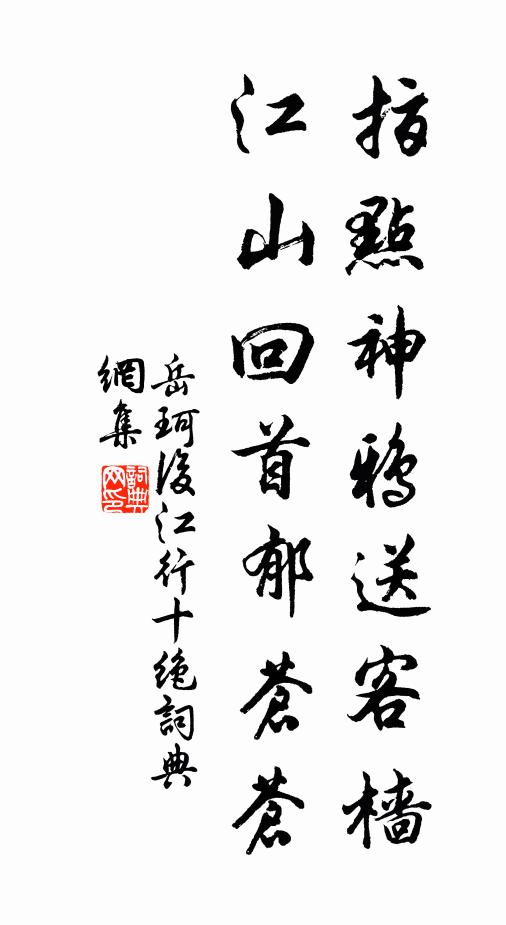 指點神鴉送客檣
江山回首郁蒼蒼
岳珂後江行十絶詞典
網集
詞典網印